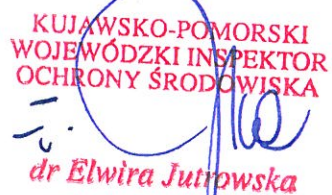 KUJAWSKO-POMORSKI
WOJEWÓDZKI INSPEKTOR
OCHRONY ŚRODOWISKA
dr Elwira Jutrowska